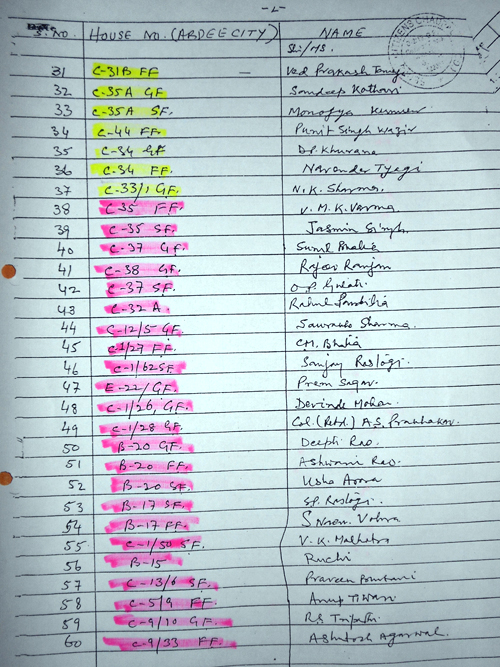 -2-
S.No. HOUSE NO. (ARDEE CITY) NAME
S/MS.
31 C-31B FF - Ved Prakash
32 C-35A GF Sandeep Kothari
33 C-35A SF. Kumar
34 C-44 FF. Punit Singh
35 C-34 GF DP Khurana
36 C-34 FF. Narender Tyagi
37 C-33/1 GF. N.K. Sharma.
38 C-35 FF. V.M.K. Varma.
39 C-35 SF. Jasmin Singh
40 C-37 GF. Sunil
41 C-38 GF. Rajeev Ranjan
42 C-37 SF. O.P. Gulati
43 C-32 A Rahul
44 C-12/5 GF Saurabh Sharma.
45 C1/27 FF. C.M. Bhatia
46 C-1/62 SF. Sanjay Rastogi.
47 E-22/GF. Prem Sagar.
48 C-1/26, GF. Devinder Mohan.
49 C-1/28 GF. Col. (Retd.) A.S. Prabhakar.
50 B-20 GF Deepti Rao.
51 B-20 FF. Ashwani Rao.
52 B-20 SF. Usha Arora
53 B-17 SF. S.P. Rastogi.
54 B-17 FF. Vohra
55 C-1/50 SF. V.K. Malhotra
56 B-15 Ruchi
57 C-13/6 SF. Praveen
58 C-5/9 FF. Anup Tiwari
59 C-9/10 GF. RS Tripathi
60 C-9/33 FF. Ashutosh Agarwal.